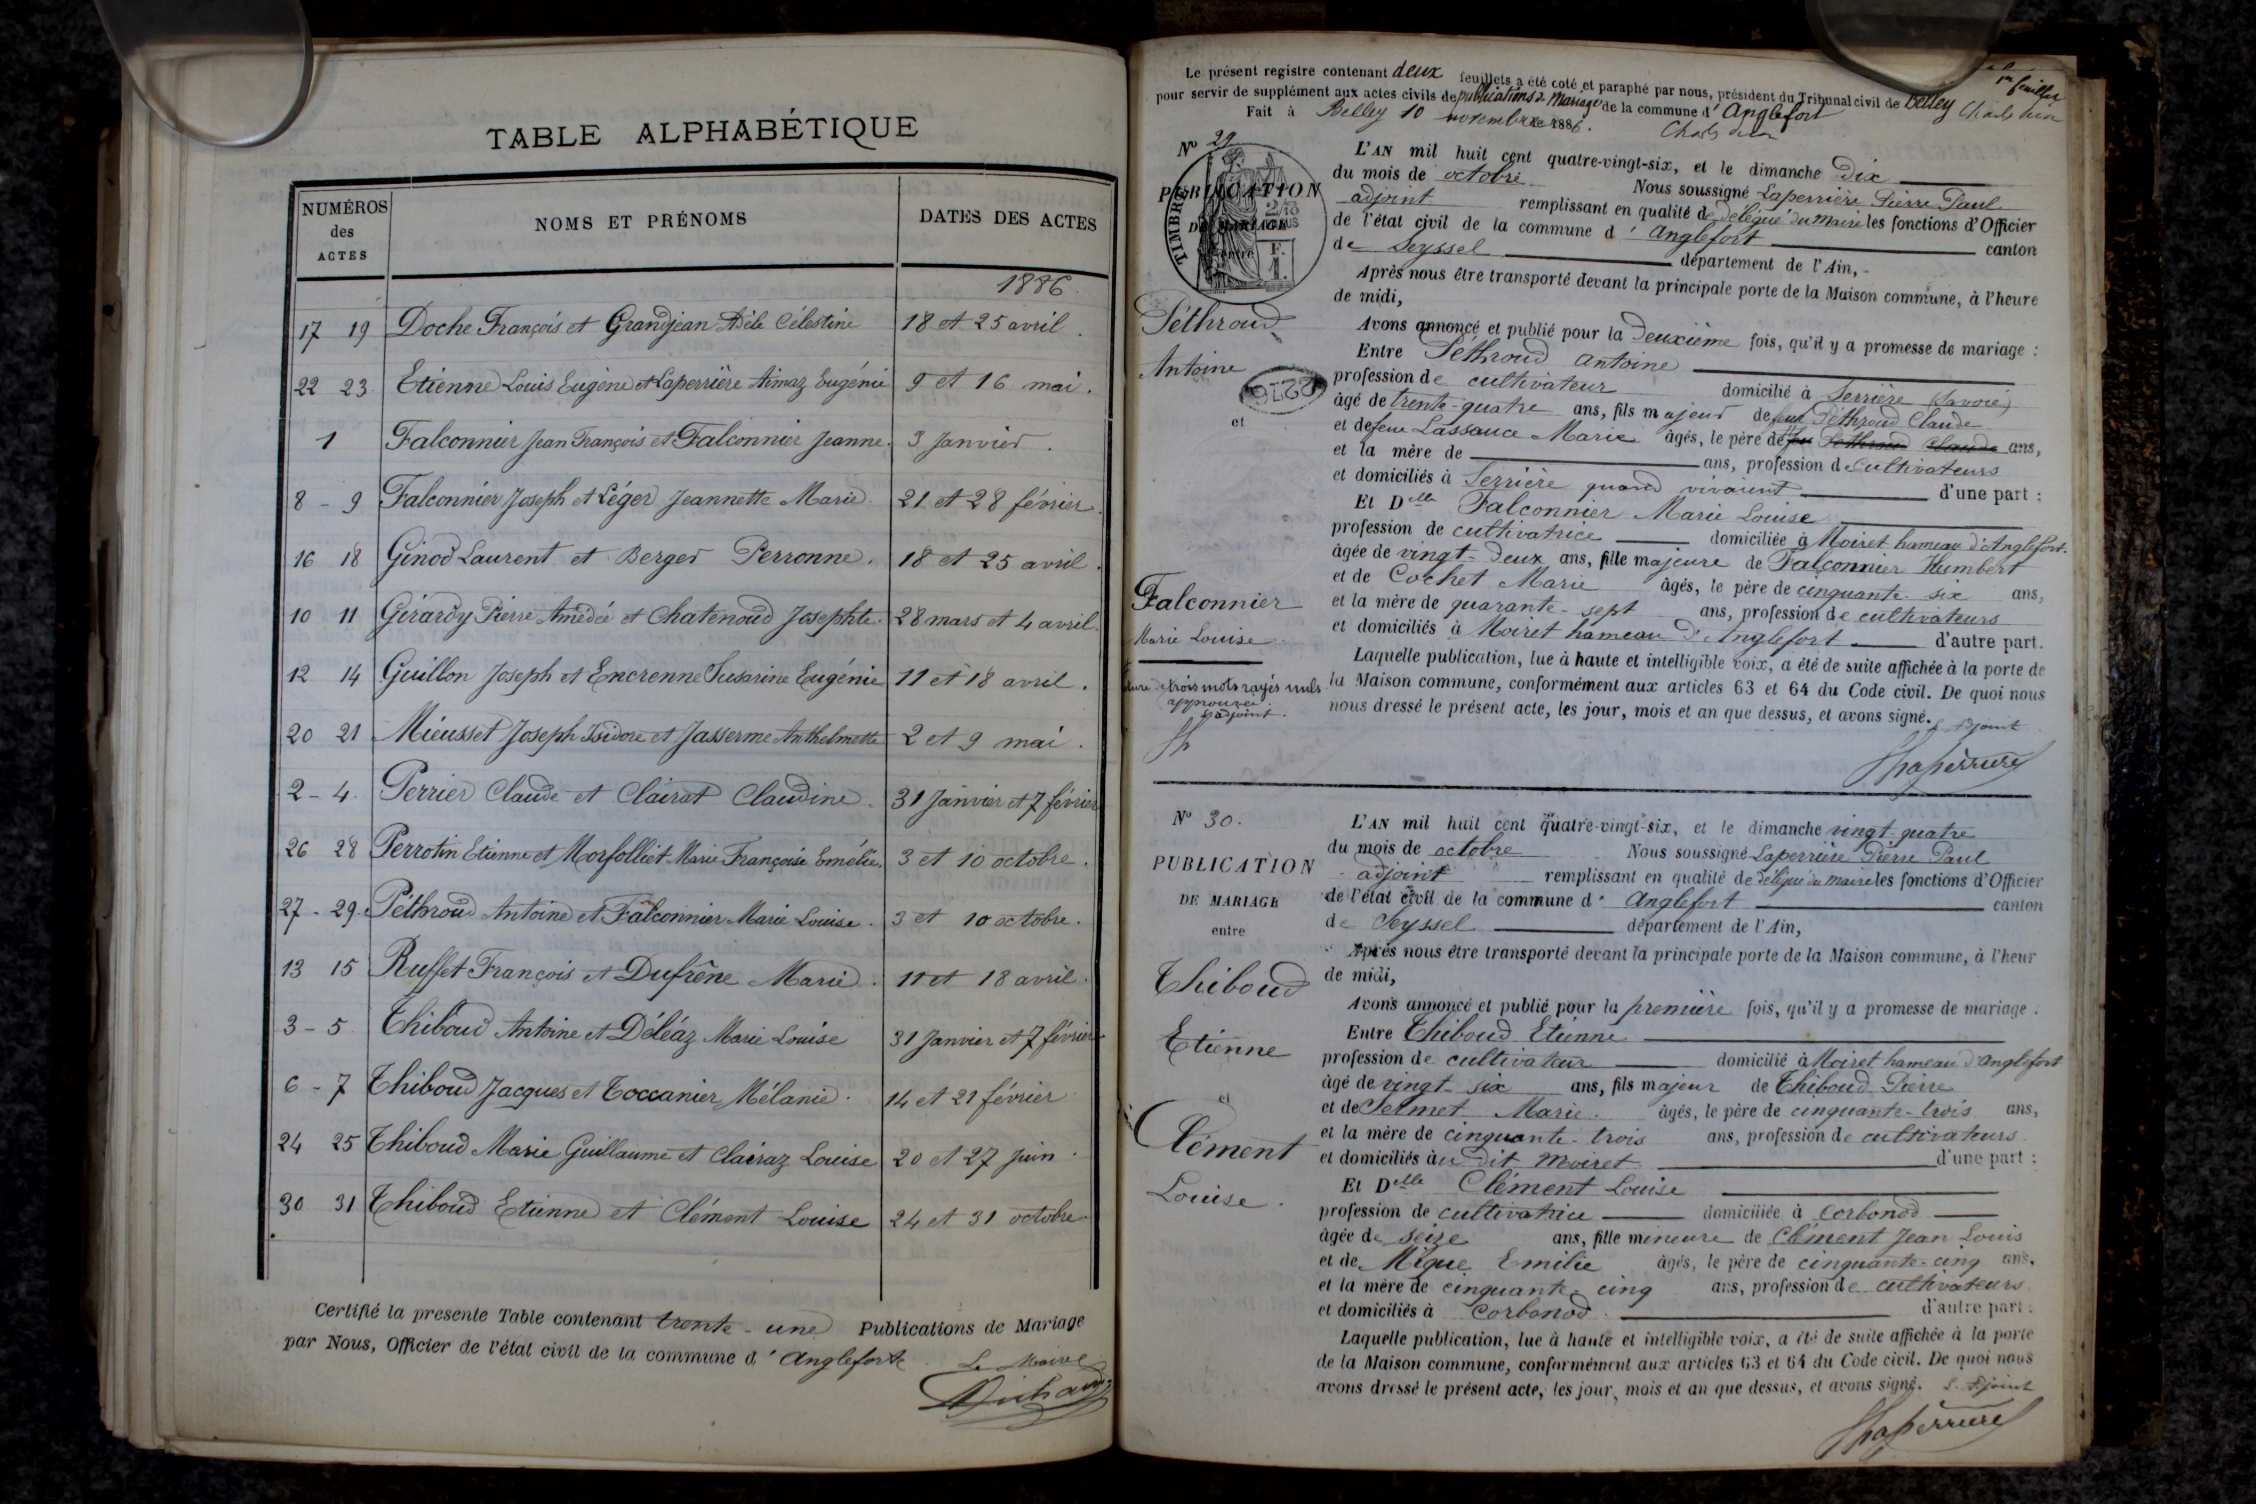 TABLE ALPHABÉTIQUE
NUMÉROS des ACTES
NOMS ET PRÉNOMS
DATES DES ACTES
1886
17 19 Doche François et Grandjean Adèle Célestine 18 et 25 avril.
22 23 Etienne Louis Eugène et Laperrière Aimaz Eugénie 9 et 16 mai.
1 Falconnier Jean François et Falconnier Jeanne. 3 Janvier.
8 - 9 Falconnier Joseph et Léger Jeannette Marie 21 et 28 février.
16 18 Ginod Laurent et Berger Perronne. 18 et 25 avril.
10 11 Girardy Pierre Amédée et Chatenoud Josephte 28 mars et 4 avril.
12 14 Guillon Joseph et Encrenne Susarine Eugénie 11 et 18 avril.
20 21 Mieusset Joseph Isidore et Jasserme Anthelmette 2 et 9 mai.
2 - 4 Perrier Claude et Clairat Claudine. 31 Janvier et 7 février
26 28 Perrotin Etienne et Morfolliet Marie Françoise Emélie. 3 et 10 octobre.
27 - 29. Péthroud Antoine et Falconnier Marie Louise. 3 et 10 octobre.
13 15 Ruffet François et Dufrêne Marie. 11 et 18 avril.
3 - 5 Thiboud Antoine et Déléaz Marie Louise 31 Janvier et 7 février
6 - 7 Thiboud Jacques et Toccanier Mélanie. 14 et 21 février
24 25 Thiboud Marie Guillaume et Clairaz Louise 20 et 27 Juin.
30 31 Thiboud Etienne et Clément Louise 24 et 31 octobre.
Certifié la presente Table contenant trente-une Publications de Mariage
par Nous, Officier de l'état civil de la commune d'Anglefort.
Le Maire
Le présent registre contenant deux feuillets a été coté et paraphé par nous, président du Tribunal civil de Belley
pour servir de supplément aux actes civils de publications de Mariage de la commune d'Anglefort
Fait à Belley 10 novembre 1886.
1er feuillet
N° 29
PUBLICATION
DE MARIAGE
entre
TIMBRE
2/10 EN SUS
F. 1.
Péthroud
Antoine
2216
et
Falconnier
Marie Louise
trois mots rayés nuls
approuvés
L'adjoint.
L'AN mil huit cent quatre-vingt-six, et le dimanche dix
du mois de octobre Nous soussigné Laperrière Pierre Paul
adjoint remplissant en qualité de délégué du maire les fonctions d'Officier
de l'état civil de la commune d'Anglefort canton
de Seyssel département de l'Ain,
Après nous être transporté devant la principale porte de la Maison commune, à l'heure
de midi,
Avons annoncé et publié pour la deuxième fois, qu'il y a promesse de mariage :
Entre Péthroud Antoine
profession de cultivateur domicilié à Serrière (Savoie)
âgé de trente-quatre ans, fils majeur de feu Péthroud Claude
et de feue Lassauce Marie âgés, le père de feu Péthroud Claude ans,
et la mère de ans, profession de cultivateurs
et domiciliés à Serrière quand vivaient d'une part :
Et Delle Falconnier Marie Louise
profession de cultivatrice domiciliée à Moiret hameau d'Anglefort.
âgée de vingt-deux ans, fille majeure de Falconnier Humbert
et de Cochet Marie âgés, le père de cinquante-six ans,
et la mère de quarante-sept ans, profession de cultivateurs
et domiciliés à Moiret hameau d'Anglefort d'autre part.
Laquelle publication, lue à haute et intelligible voix, a été de suite affichée à la porte de
la Maison commune, conformément aux articles 63 et 64 du Code civil. De quoi nous
nous dressé le présent acte, les jour, mois et an que dessus, et avons signé. L'adjoint
Laperrière
N° 30.
PUBLICATION
DE MARIAGE
entre
Thiboud
Etienne
et
Clément
Louise.
L'AN mil huit cent quatre-vingt-six, et le dimanche vingt-quatre
du mois de octobre Nous soussigné Laperrière Pierre Paul
adjoint remplissant en qualité de délégué du maire les fonctions d'Officier
de l'état civil de la commune d'Anglefort canton
de Seyssel département de l'Ain,
Après nous être transporté devant la principale porte de la Maison commune, à l'heur
de midi,
Avons annoncé et publié pour la première fois, qu'il y a promesse de mariage :
Entre Thiboud Etienne
profession de cultivateur domicilié à Moiret hameau d'Anglefort
âgé de vingt-six ans, fils majeur de Thiboud Pierre
et de Sermet Marie. âgés, le père de cinquante-trois ans,
et la mère de cinquante-trois ans, profession de cultivateurs
et domiciliés àu dit Moiret d'une part :
Et Delle Clément Louise
profession de cultivatrice domiciliée à Corbonod
âgée de seize ans, fille mineure de Clément Jean Louis
et de Mique Emilie âgés, le père de cinquante-cinq ans,
et la mère de cinquante-cinq ans, profession de cultivateurs
et domiciliés à Corbonod d'autre part :
Laquelle publication, lue à haute et intelligible voix, a été de suite affichée à la porte
de la Maison commune, conformément aux articles 63 et 64 du Code civil. De quoi nous
avons dressé le présent acte, les jour, mois et an que dessus, et avons signé. L'adjoint
Laperrière